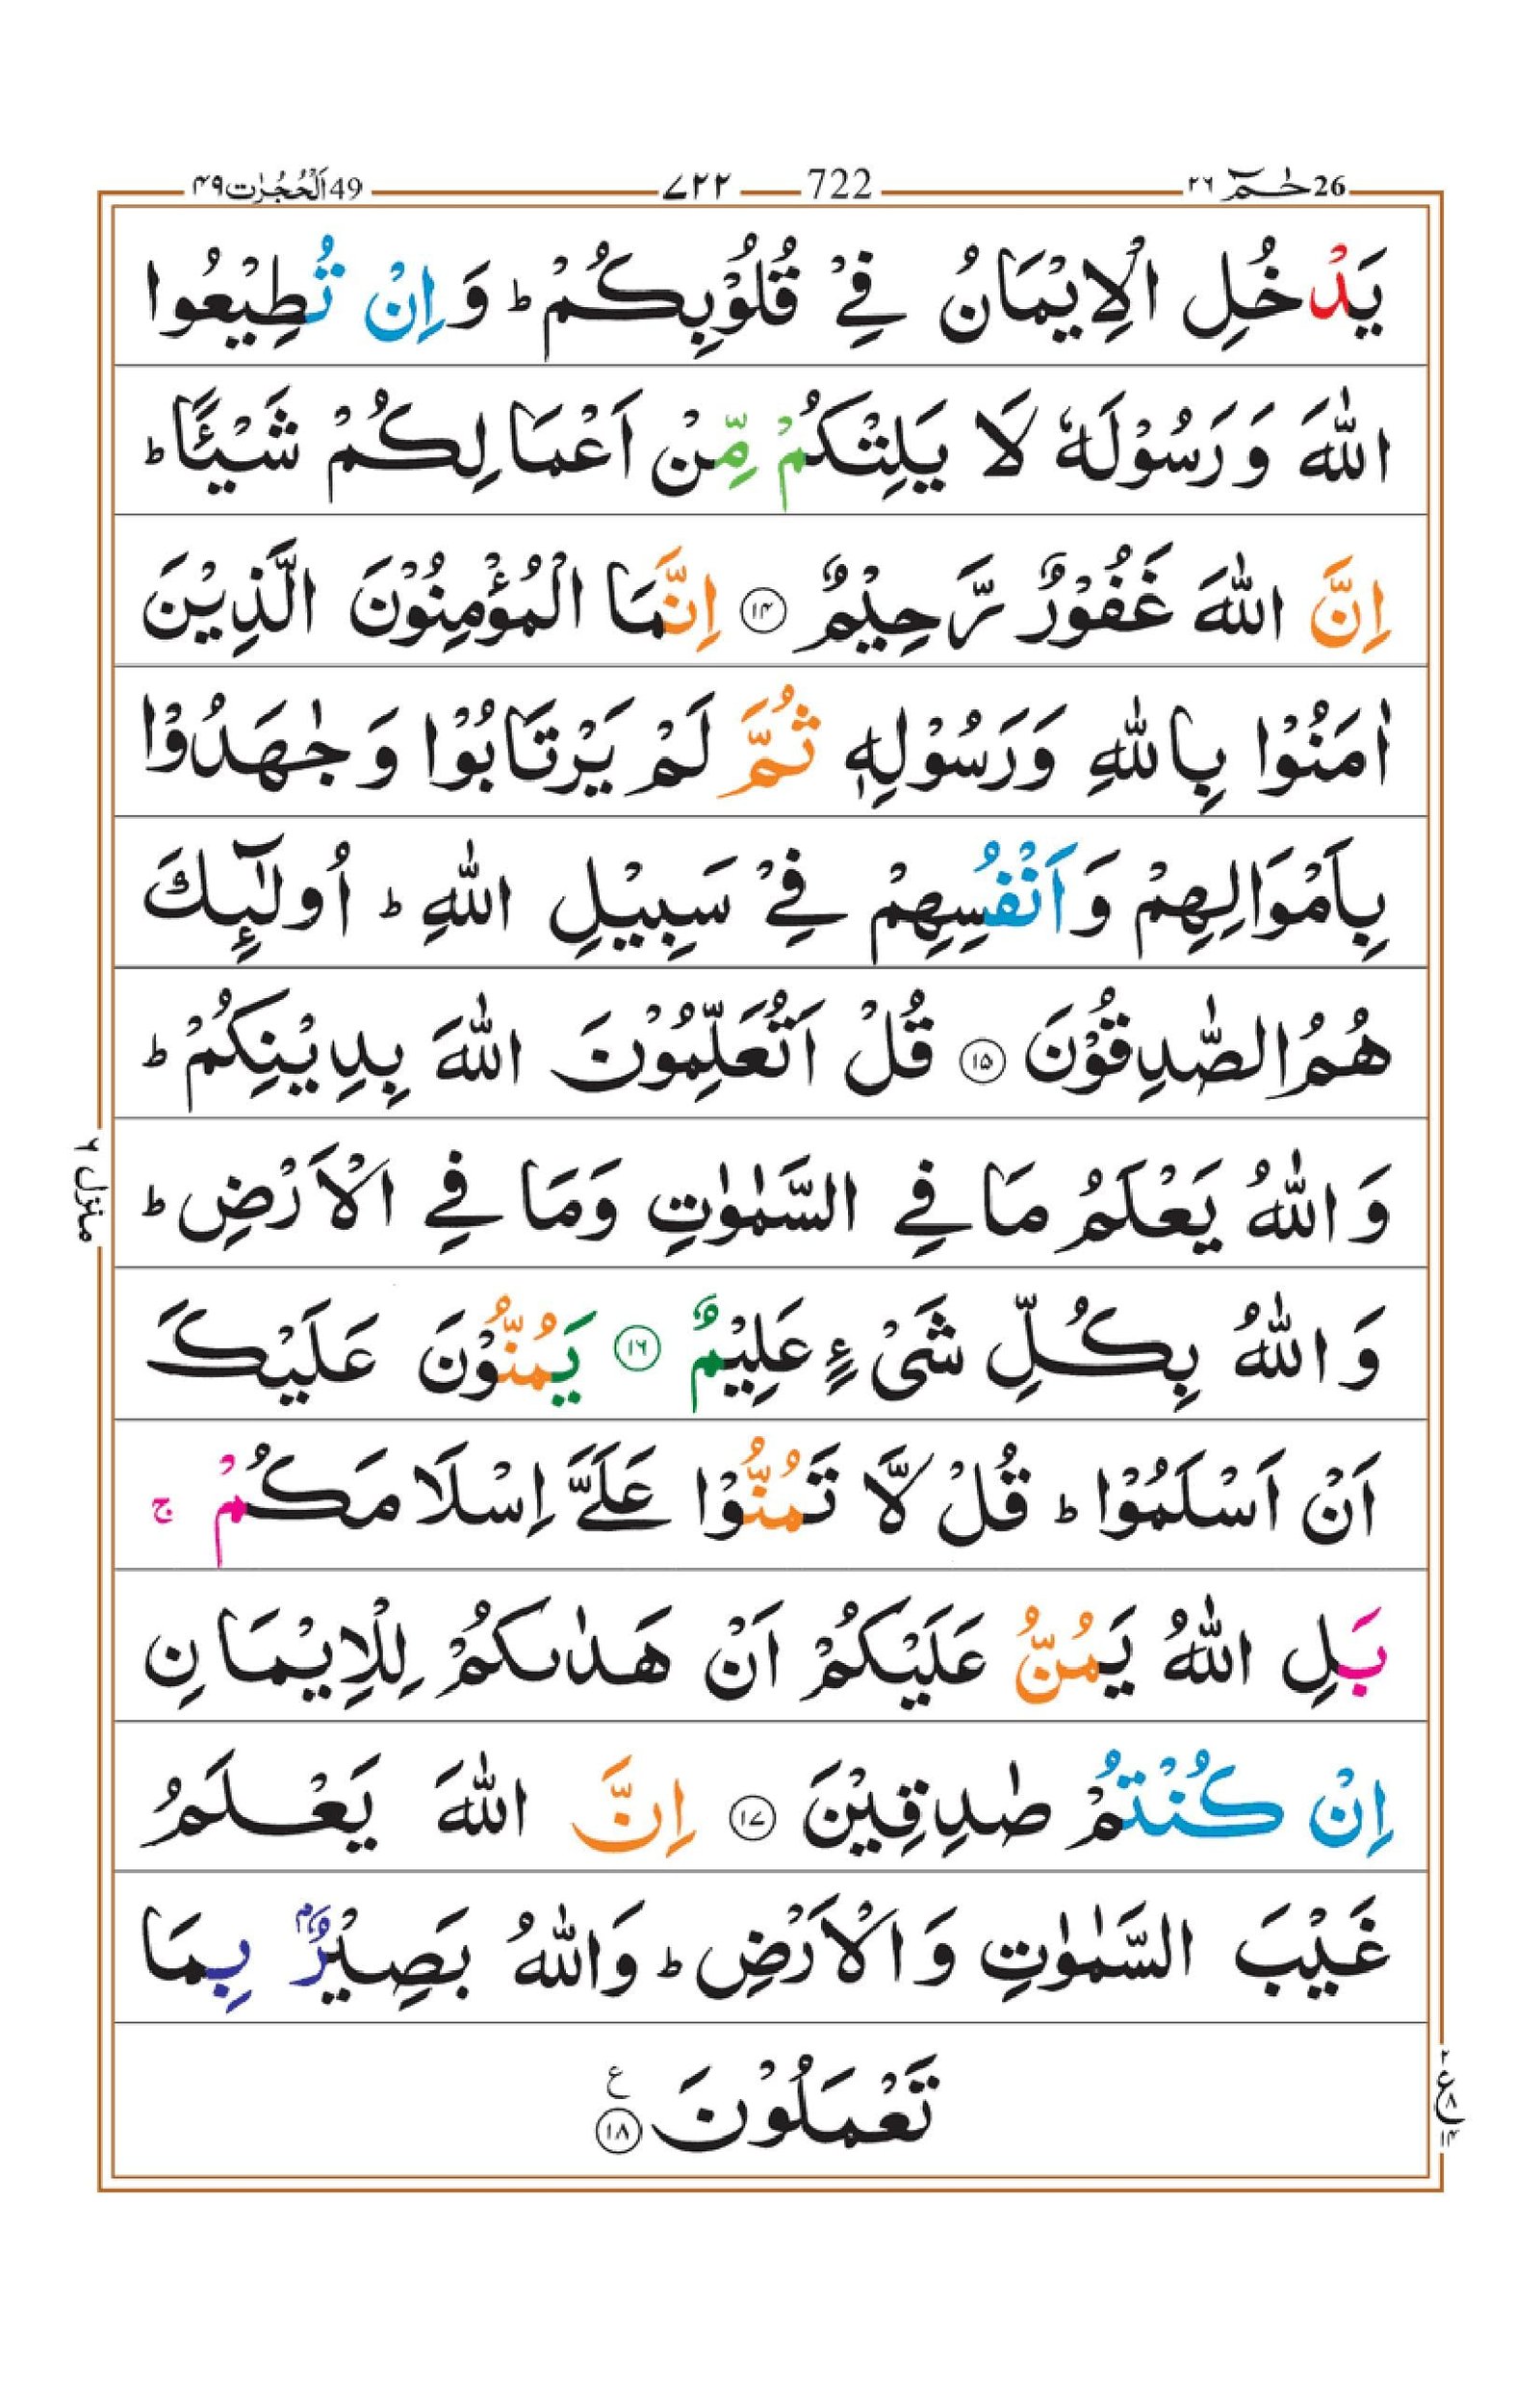 26 حٰـمٓ ٢٦ 722 ٧٢٢ 49 اَلْحُجُرٰت ٤٩
يَدْخُلِ الْاِيْمَانُ فِيْ قُلُوْبِكُمْ ؕ وَ اِنْ تُطِيْعُوا
اللّٰهَ وَ رَسُوْلَهٗ لَا يَلِتْكُمْ مِّنْ اَعْمَالِكُمْ شَيْـًٔا ؕ
اِنَّ اللّٰهَ غَفُوْرٌ رَّحِيْمٌ ۝۱۴ اِنَّمَا الْمُؤْمِنُوْنَ الَّذِيْنَ
اٰمَنُوْا بِاللّٰهِ وَ رَسُوْلِهٖ ثُمَّ لَمْ يَرْتَابُوْا وَ جٰهَدُوْا
بِاَمْوَالِهِمْ وَ اَنْفُسِهِمْ فِيْ سَبِيْلِ اللّٰهِ ؕ اُولٰٓئِكَ
هُمُ الصّٰدِقُوْنَ ۝۱۵ قُلْ اَتُعَلِّمُوْنَ اللّٰهَ بِدِيْنِكُمْ ؕ
وَ اللّٰهُ يَعْلَمُ مَا فِي السَّمٰوٰتِ وَمَا فِي الْاَرْضِ ؕ
وَ اللّٰهُ بِكُلِّ شَيْءٍ عَلِيْمٌ ۝۱۶ يَمُنُّوْنَ عَلَيْكَ
اَنْ اَسْلَمُوْا ؕ قُلْ لَّا تَمُنُّوْا عَلَيَّ اِسْلَامَكُمْ ۚ
بَلِ اللّٰهُ يَمُنُّ عَلَيْكُمْ اَنْ هَدٰىكُمْ لِلْاِيْمَانِ
اِنْ كُنْتُمْ صٰدِقِيْنَ ۝۱۷ اِنَّ اللّٰهَ يَعْلَمُ
غَيْبَ السَّمٰوٰتِ وَ الْاَرْضِ ؕ وَاللّٰهُ بَصِيْرٌۢ بِمَا
تَعْمَلُوْنَ ۝۱۸ ع
منزل ٦
٢ ع ٨ ۱۴